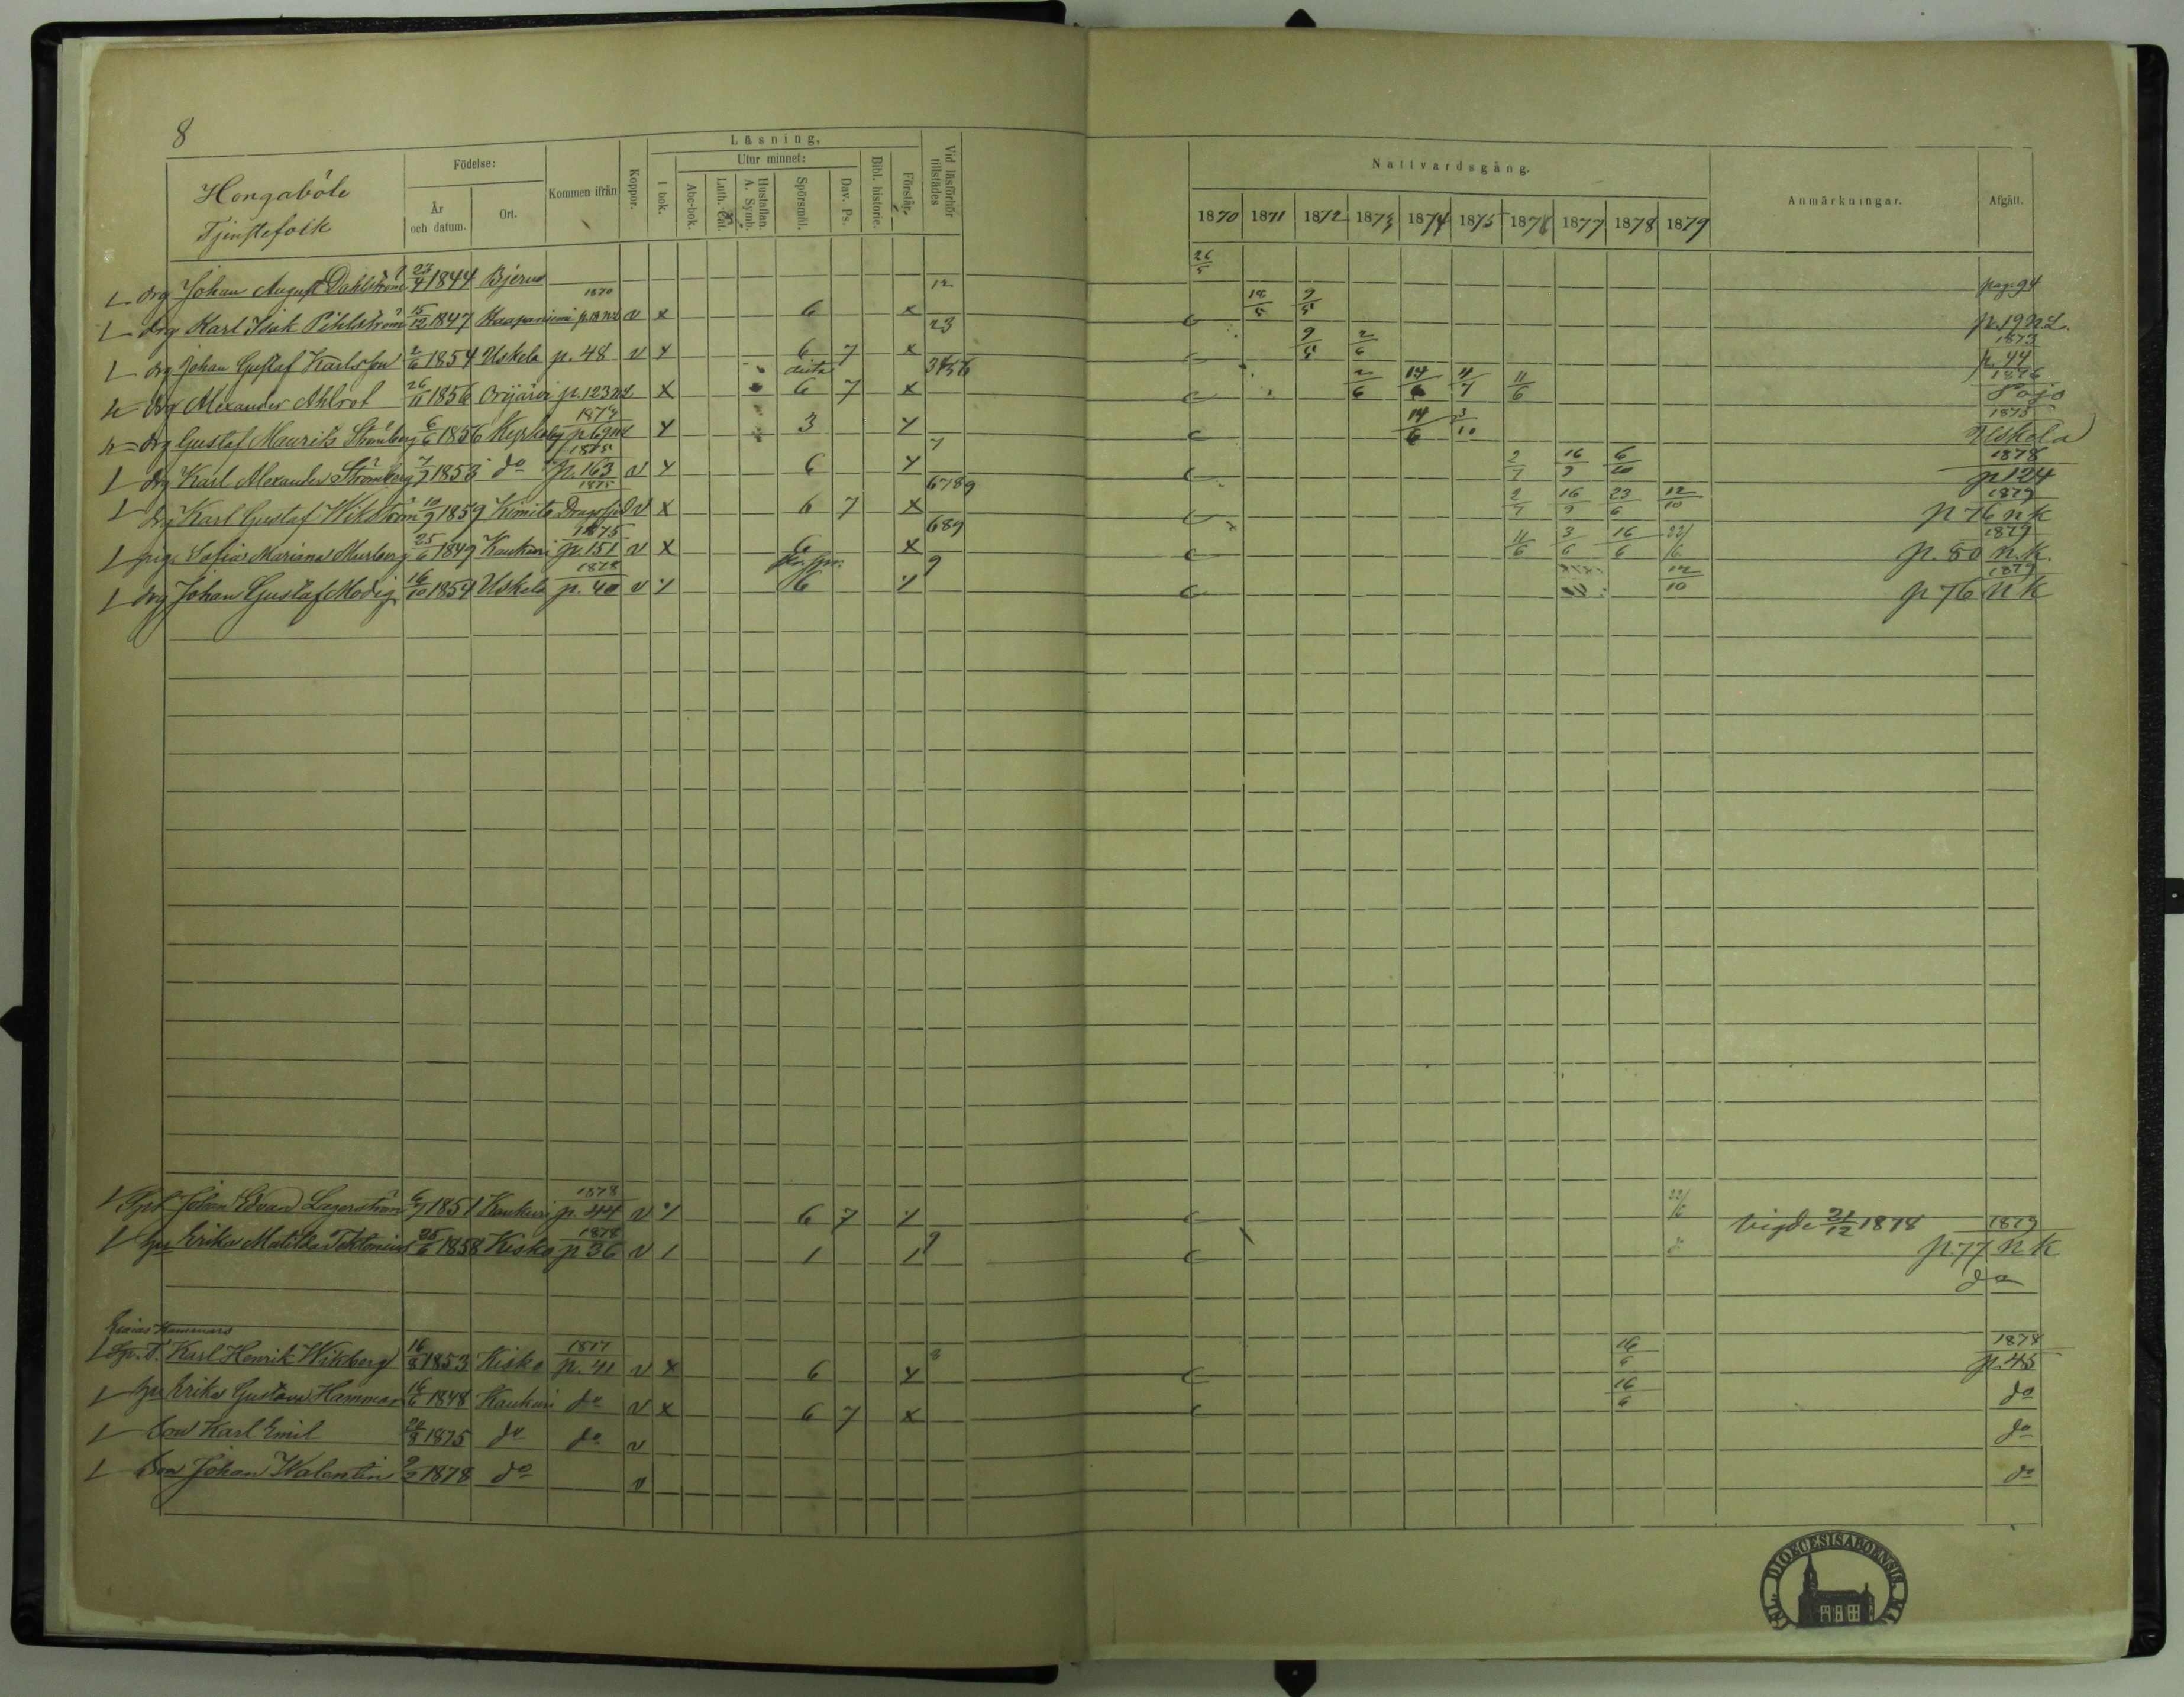 8
Hongaböle
Tjenstefolk
Födelse:
År och datum.
Ort.
Kommen ifrån
Koppor.
Läsning,
I bok.
Utur minnet:
Abc-bok.
Luth. Cat.
Hustaflan. A. Symb.
Spörsmål.
Dav. Ps.
Bibl. historie.
Förstår.
Vid läsförhör tillstädes
Nattvardsgång.
1870 1871 1872 1873 1874 1875 1876 1877 1878 1879
Anmärkningar.
Afgått.
drg Johan August Dahlström 23/4 1844 Bjerno 26/5 pag. 94
drg Karl Isak Pihlström 15/12 1847 Haapaniemi 1870 v x 6 x 12 18/5 9/5 p. 19 n.L.
drg Johan Gustaf Karlsson 2/6 1854 Uskela p. 48 v x 6 7 x 23 9/5 2/6 1873 p. 44
drg Alexander Ahlrot 26/11 1856 Orijärvi p. 123 x 6 7 x 3456 2/6 14/6 11/7 11/6 1876 Pojo
drg Gustaf Maurits Strömberg 6/6 1856 Kyrkoby 1874 x 3 x 14/6 3/10 1875 Uskela
drg Karl Alexander Strömberg 7/7 1853 do 1875 p. 163 v x 6 x 7 2/7 16/9 6/10 1878 p 124
drg Karl Gustaf Wikström 10/9 1859 Kimito Dragsfjerd 1875 v x 6 7 x 6789 2/7 16/9 23/6 12/10 1879 p 76 n k
pig. Sofia Mariana Murberg 25/6 1849 Kaukuri 1875 p. 151 v x 6 x 689 11/6 3/6 16/6 22/6 1879 p. 80 n. k.
drg Johan Gustaf Modig 16/10 1854 Uskela 1878 p. 40 v 6 9 12/10 1879 p 76 n k
Johan Edvard Lagerström 1851 Kaukuri 1878 p. 44 v 6 7 22/6 Vigde 21/12 1878 1879 p. 77 n k
hu Erika Matilda Tektonius 25/6 1858 Kisko 1878 p 36 v 1 1 1 9 do do
Karl Henrik Wikberg 16/8 1853 Kisko 1877 p. 41 v x 6 x 8 16/6 1878 p. 45
hu Erika Gustava Hammar 16/6 1848 Kaukuri do v x 6 7 x 16/6 do
Son Karl Emil 1875 do do v do
Son Johan Walentin 9/2 1878 do v do
DIOECESIS ABOENSIS